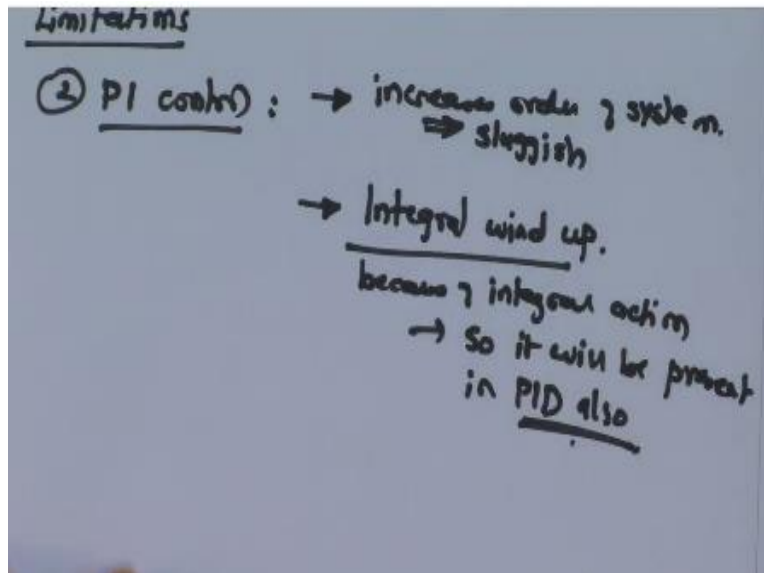 Limitations
② PI control : → increases order of system.
⇒ sluggish
→ Integral wind up.
because of integral action
→ So it will be present
in PID also